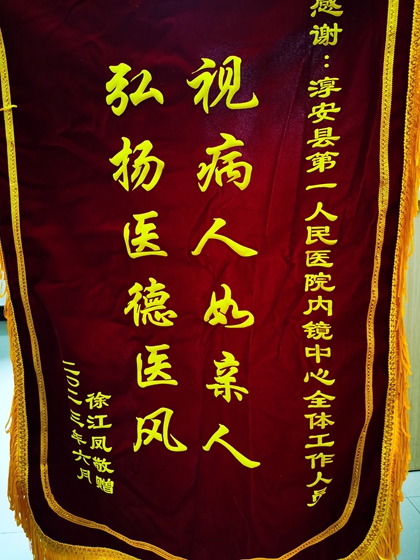 感谢：淳安县第一人民医院内镜中心全体工作人员
视病人如亲人
弘扬医德医风
徐江凤敬赠
二〇二三年六月